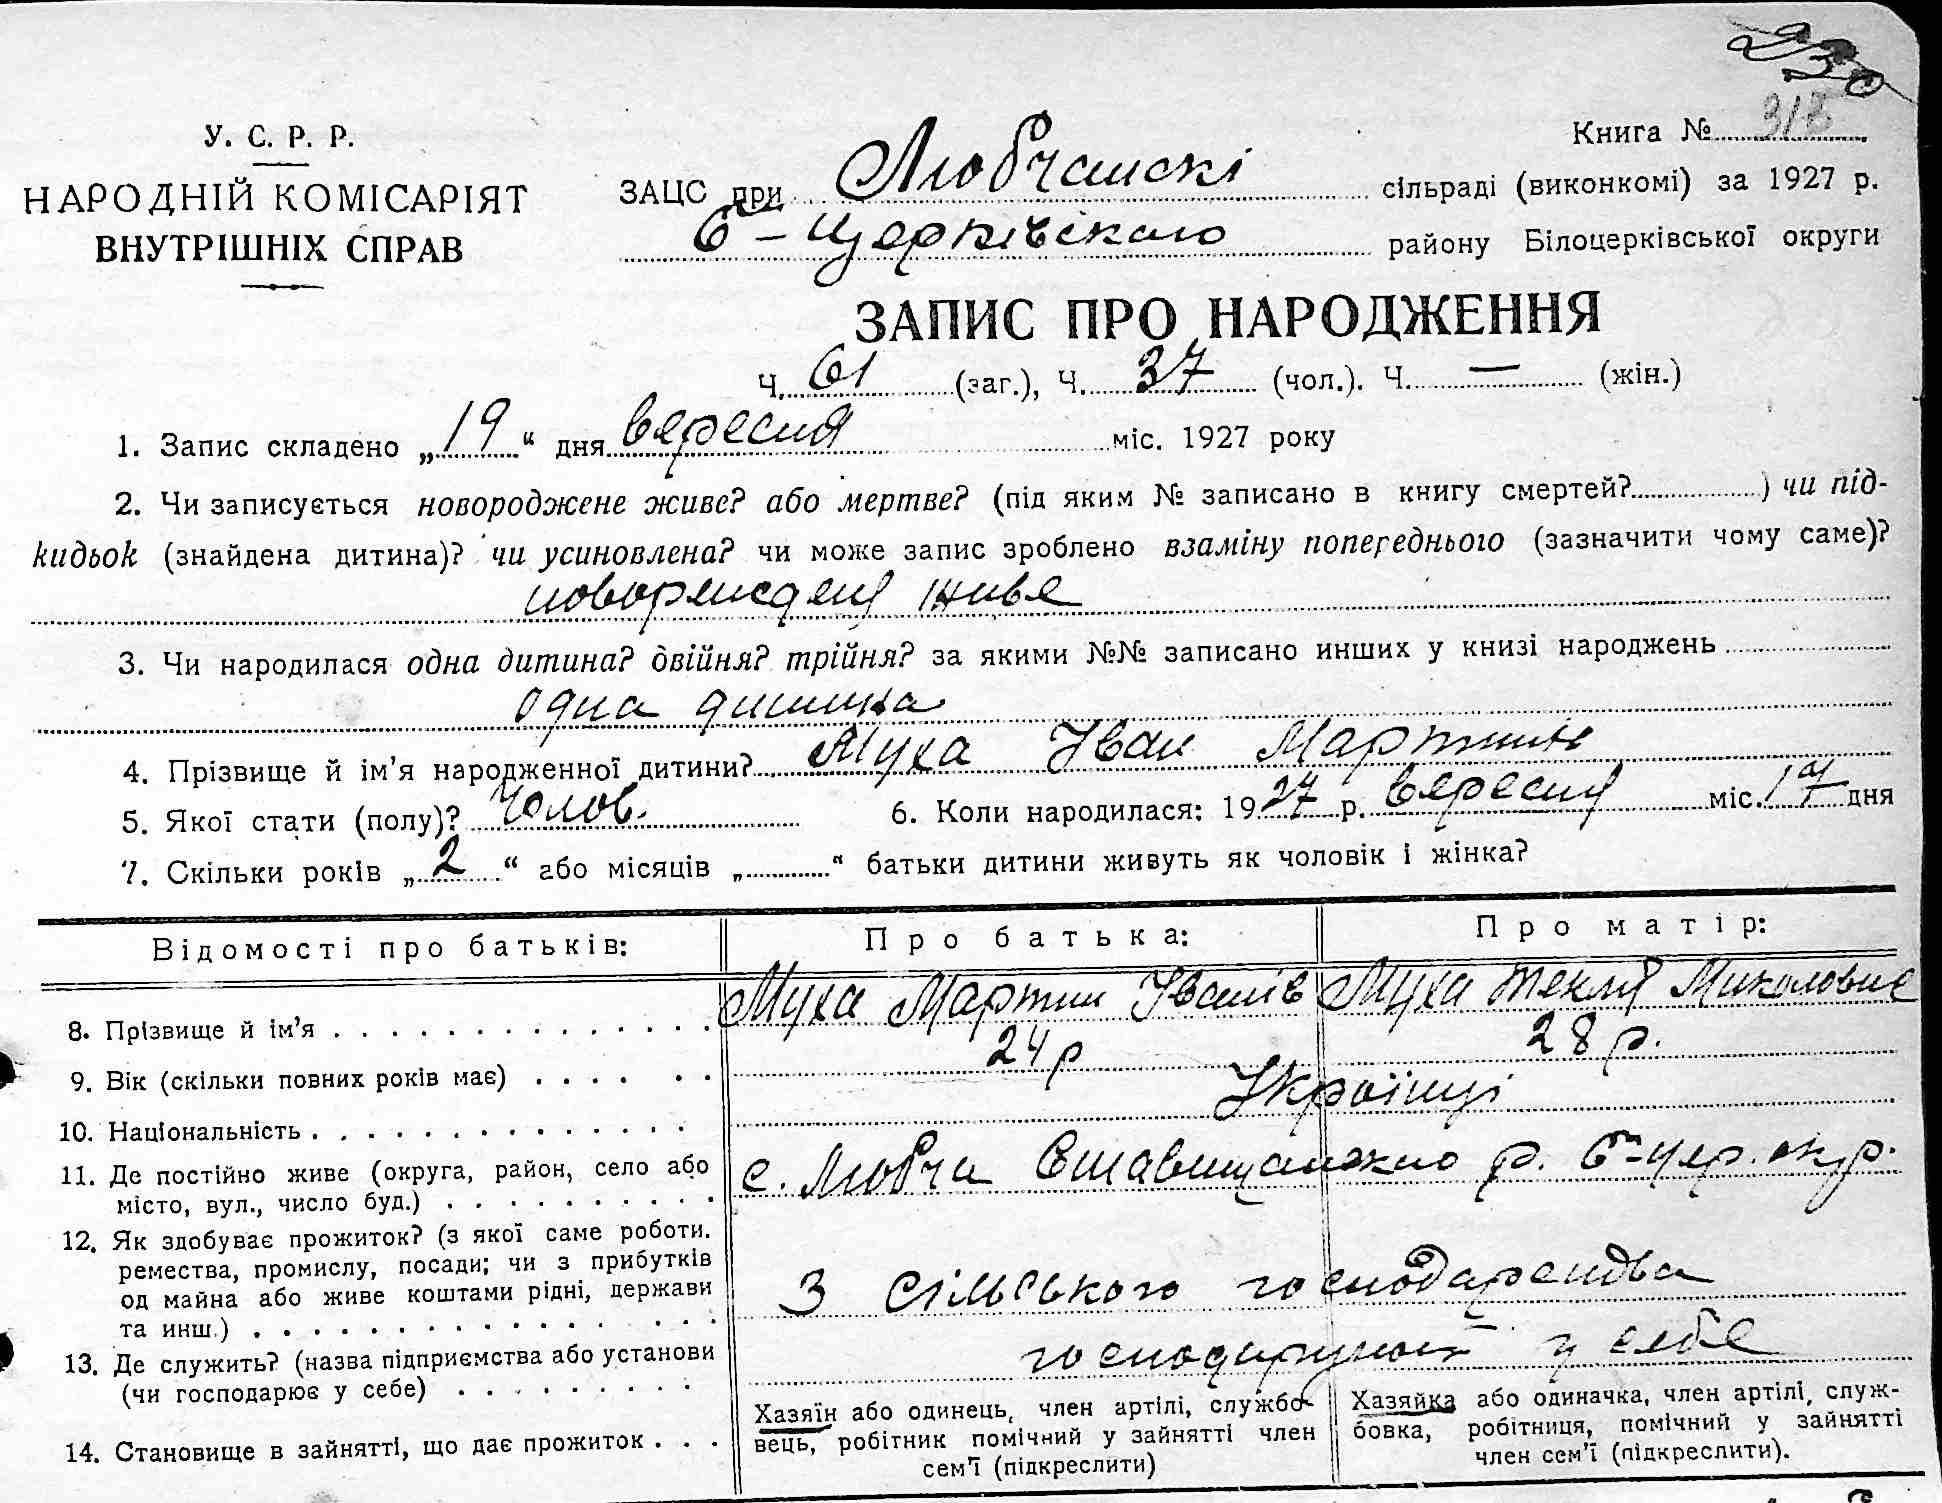 230
У. С. Р. Р.
НАРОДНІЙ КОМІСАРІЯТ
ВНУТРІШНІХ СПРАВ
Книга № 318
ЗАЦС при Любчанскі сільраді (виконкомі) за 1927 р.
Б-Церківського району Білоцерківської округи
ЗАПИС ПРО НАРОДЖЕННЯ
Ч. 61 (заг.), Ч. 37 (чол.). Ч. — (жін.)
1. Запис складено „19“ дня вересня міс. 1927 року
2. Чи записується новороджене живе? або мертве? (під яким № записано в книгу смертей? ) чи під-
кидьок (знайдена дитина)? чи усиновлена? чи може запис зроблено взаміну попереднього (зазначити чому саме)?
живе
3. Чи народилася одна дитина? двійня? трійня? за якими №№ записано инших у книзі народжень
одна дитина
4. Прізвище й ім’я народженної дитини? Муха Іван Мартинів
5. Якої стати (полу)? Чолов. 6. Коли народилася: 1927 р. вересня міс. 17 дня
7. Скільки років „2“ або місяців „ “ батьки дитини живуть як чоловік і жінка?
Відомості про батьків: Про батька: Про матір:
8. Прізвище й ім’я Муха Мартин Іванів Муха Текля Миколовне
9. Вік (скільки повних років має) 24 р 28 р.
10. Національність Українці
11. Де постійно живе (округа, район, село або
місто, вул., число буд.) с. Любча Ставищанського р. Б-Цер. окр.
12. Як здобуває прожиток? (з якої саме роботи.
ремества, промислу, посади; чи з прибутків
од майна або живе коштами рідні, держави
та инш.) З сільського господарства
13. Де служить? (назва підприємства або установи
(чи господарює у себе) у себе
14. Становище в зайнятті, що дає прожиток
Хазяїн або одинець, член артілі, службо-
вець, робітник помічний у зайнятті член
сем’ї (підкреслити)
Хазяйка або одиначка, член артілі, служ-
бовка, робітниця, помічний у зайнятті
член сем’ї (підкреслити).